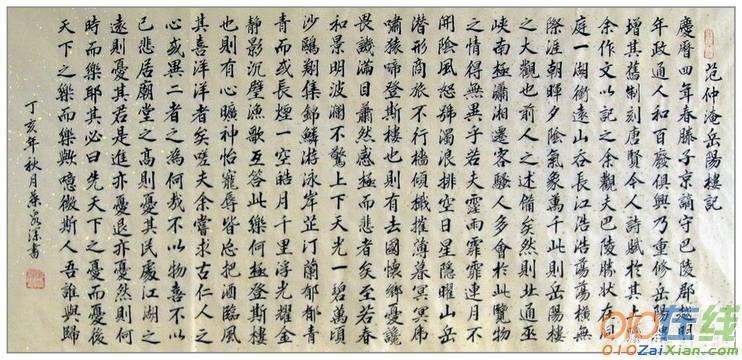 范仲淹岳陽樓記
慶曆四年春滕子京謫守巴陵郡越明
年政通人和百廢俱興乃重修岳陽樓
增其舊制刻唐賢今人詩賦於其上屬
余作文以記之余觀夫巴陵勝狀在洞
庭一湖銜遠山吞長江浩浩蕩蕩橫無
際涯朝暉夕陰氣象萬千此則岳陽樓
之大觀也前人之述備矣然則北通巫
峽南極瀟湘遷客騷人多會於此覽物
之情得無異乎若夫霪雨霏霏連月不
開陰風怒號濁浪排空日星隱曜山岳
潛形商旅不行檣傾檝摧薄暮冥冥虎
嘯猿啼登斯樓也則有去國懷鄉憂讒
畏譏滿目蕭然感極而悲者矣至若春
和景明波瀾不驚上下天光一碧萬頃
沙鷗翔集錦鱗游泳岸芷汀蘭郁郁青
青而或長煙一空皓月千里浮光耀金
靜影沉璧漁歌互答此樂何極登斯樓
也則有心曠神怡寵辱皆忘把酒臨風
其喜洋洋者矣嗟夫余嘗求古仁人之
心或異二者之為何哉不以物喜不以
己悲居廟堂之高則憂其民處江湖之
遠則憂其君是進亦憂退亦憂然則何
時而樂耶其必曰先天下之憂而憂後
天下之樂而樂歟噫微斯人吾誰與歸
丁亥年秋月 書
在线
010ZaiXian.com